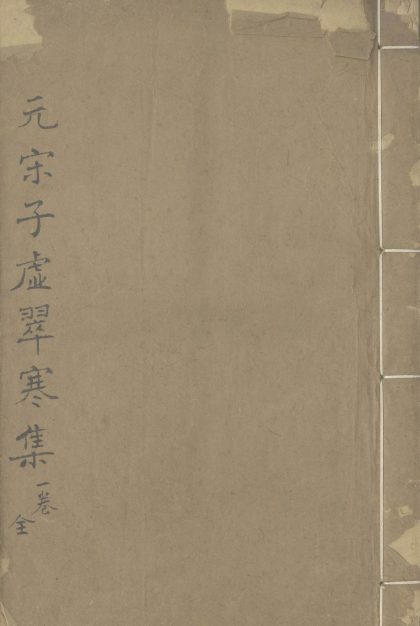 元宋子虛翠寒集一卷
全